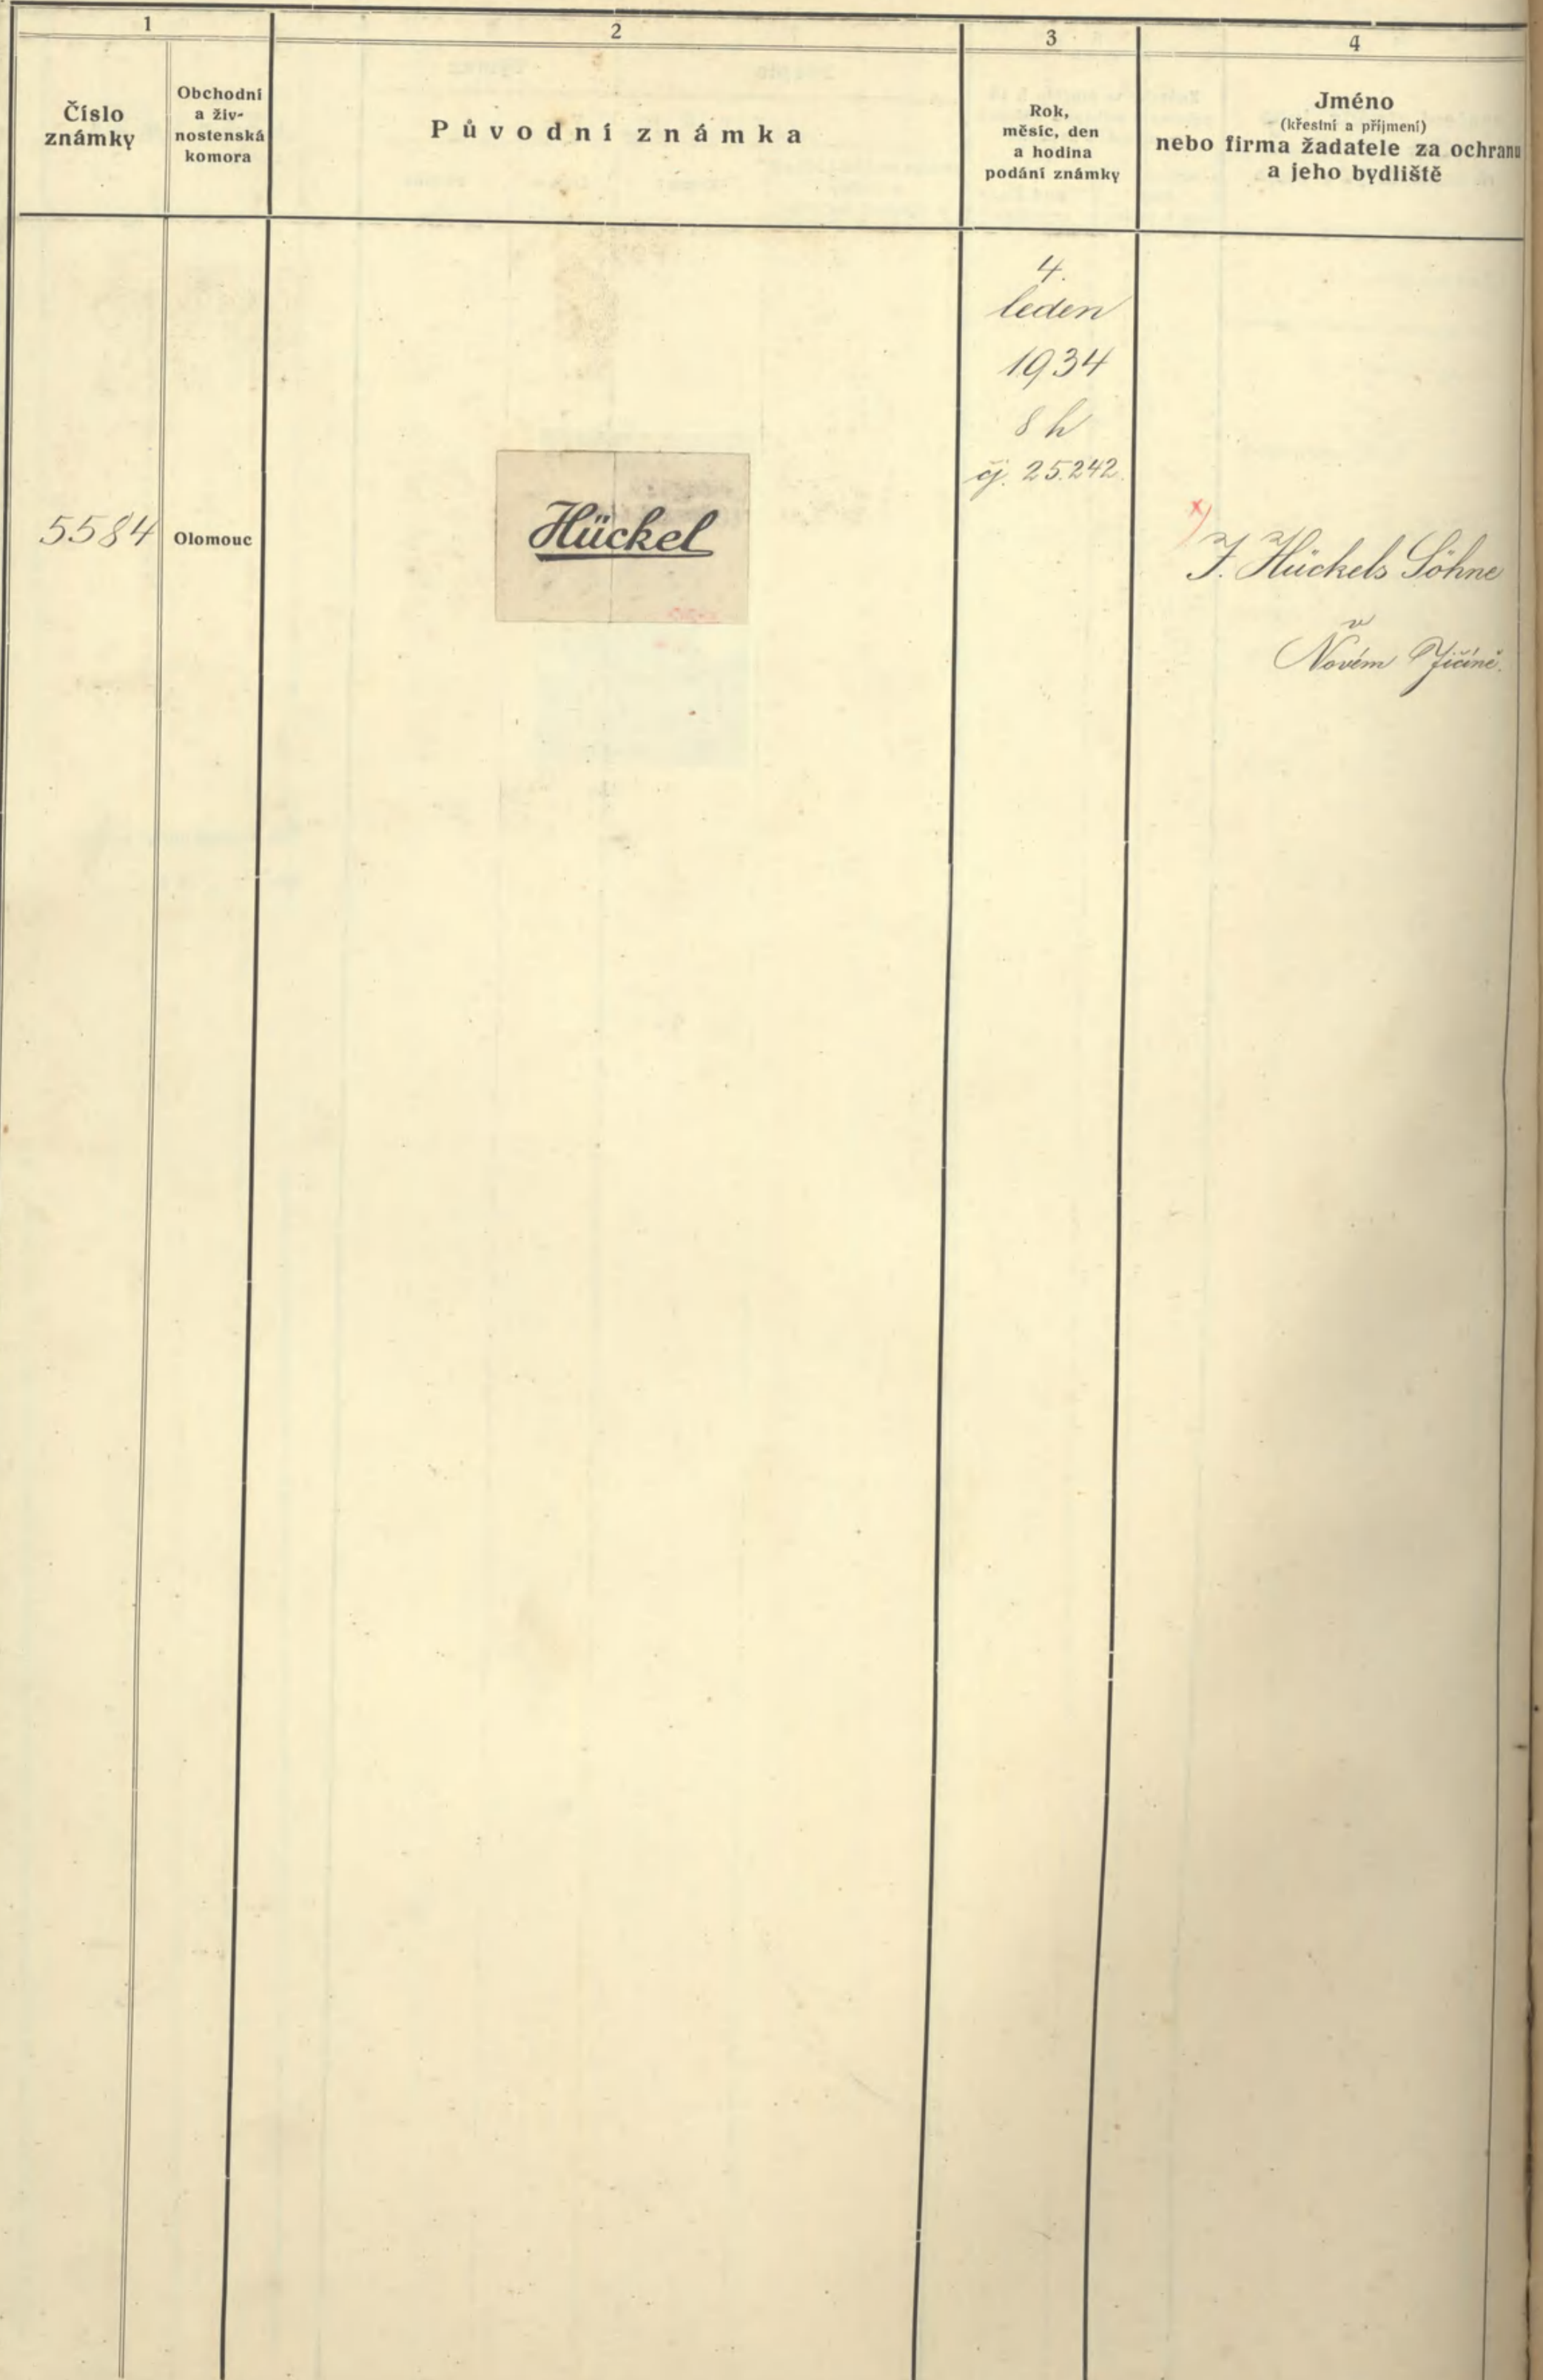 1
2
3
4
Číslo
známky
Obchodní
a živ-
nostenská
komora
Původní známka
Rok,
měsíc, den
a hodina
podání známky
Jméno
(křestní a příjmení)
nebo firma žadatele za ochranu
a jeho bydliště
4.
leden
1934
8 h
čj. 25.242.
5584
Olomouc
Hückel
x)
J. Hückels Söhne
v
Novém Jičíně.